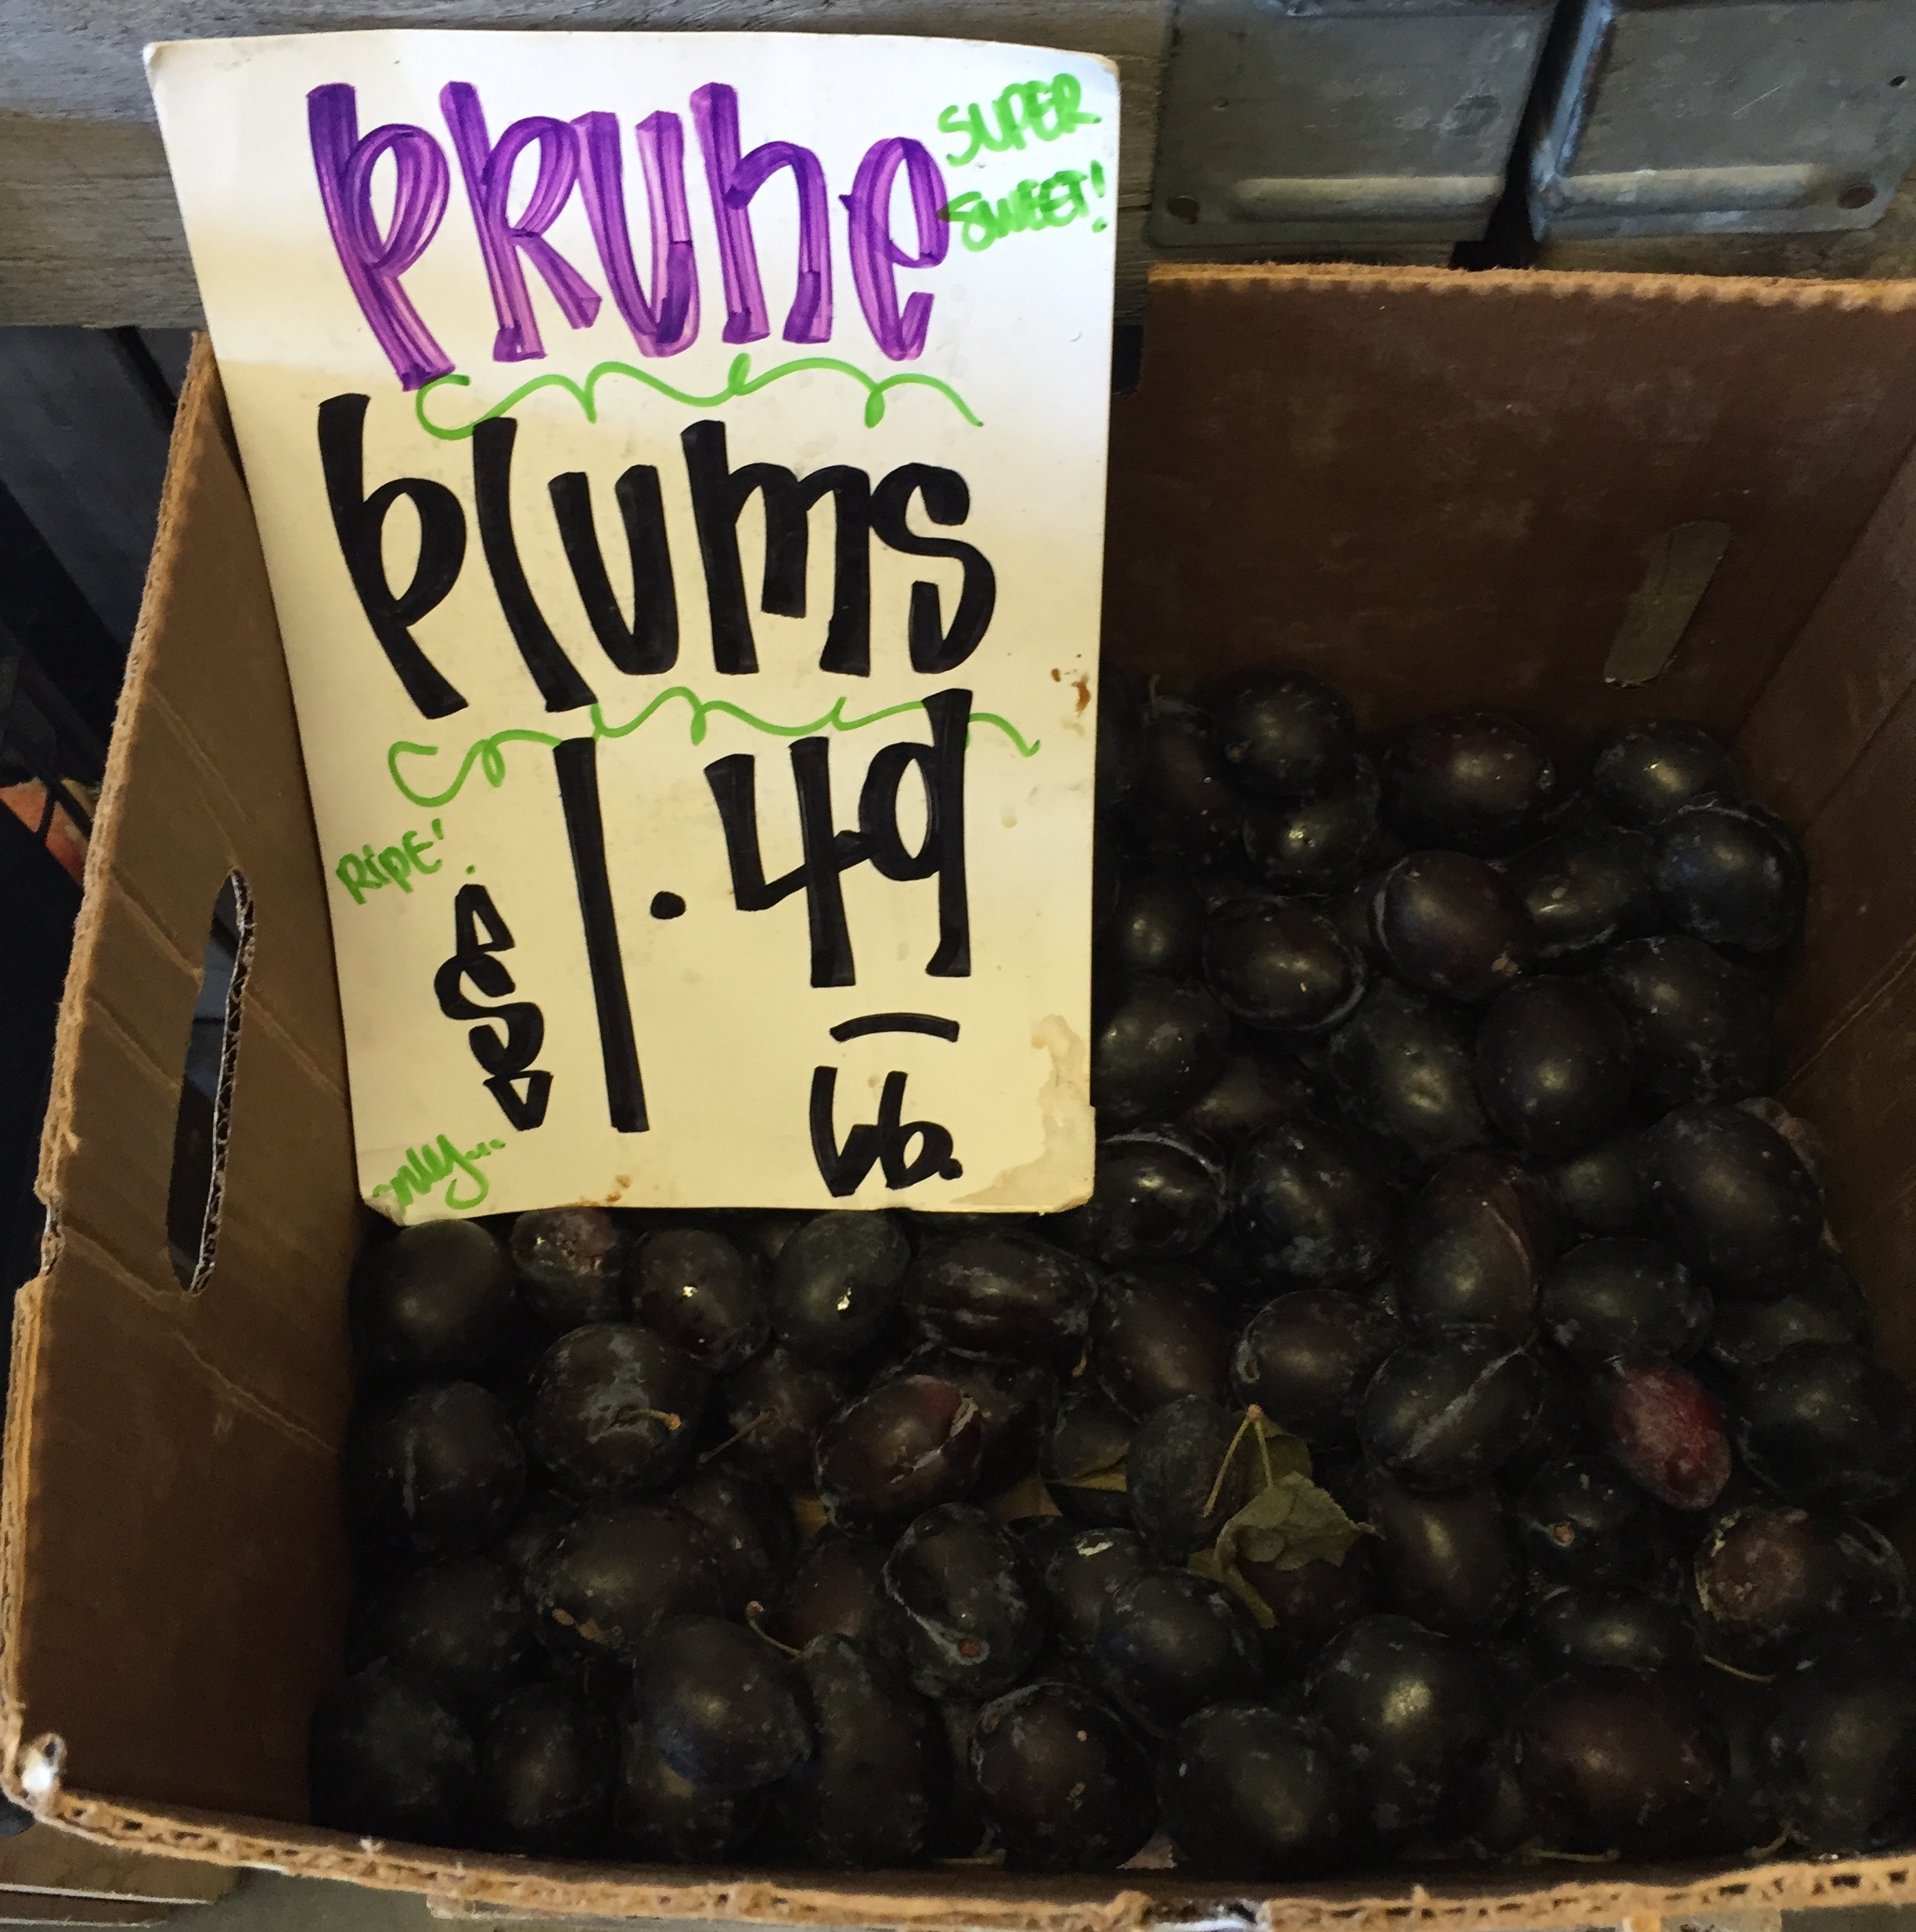 PRUNE
SUPER
SWEET!
plums
RiPE!
$1.49
lb.
only...